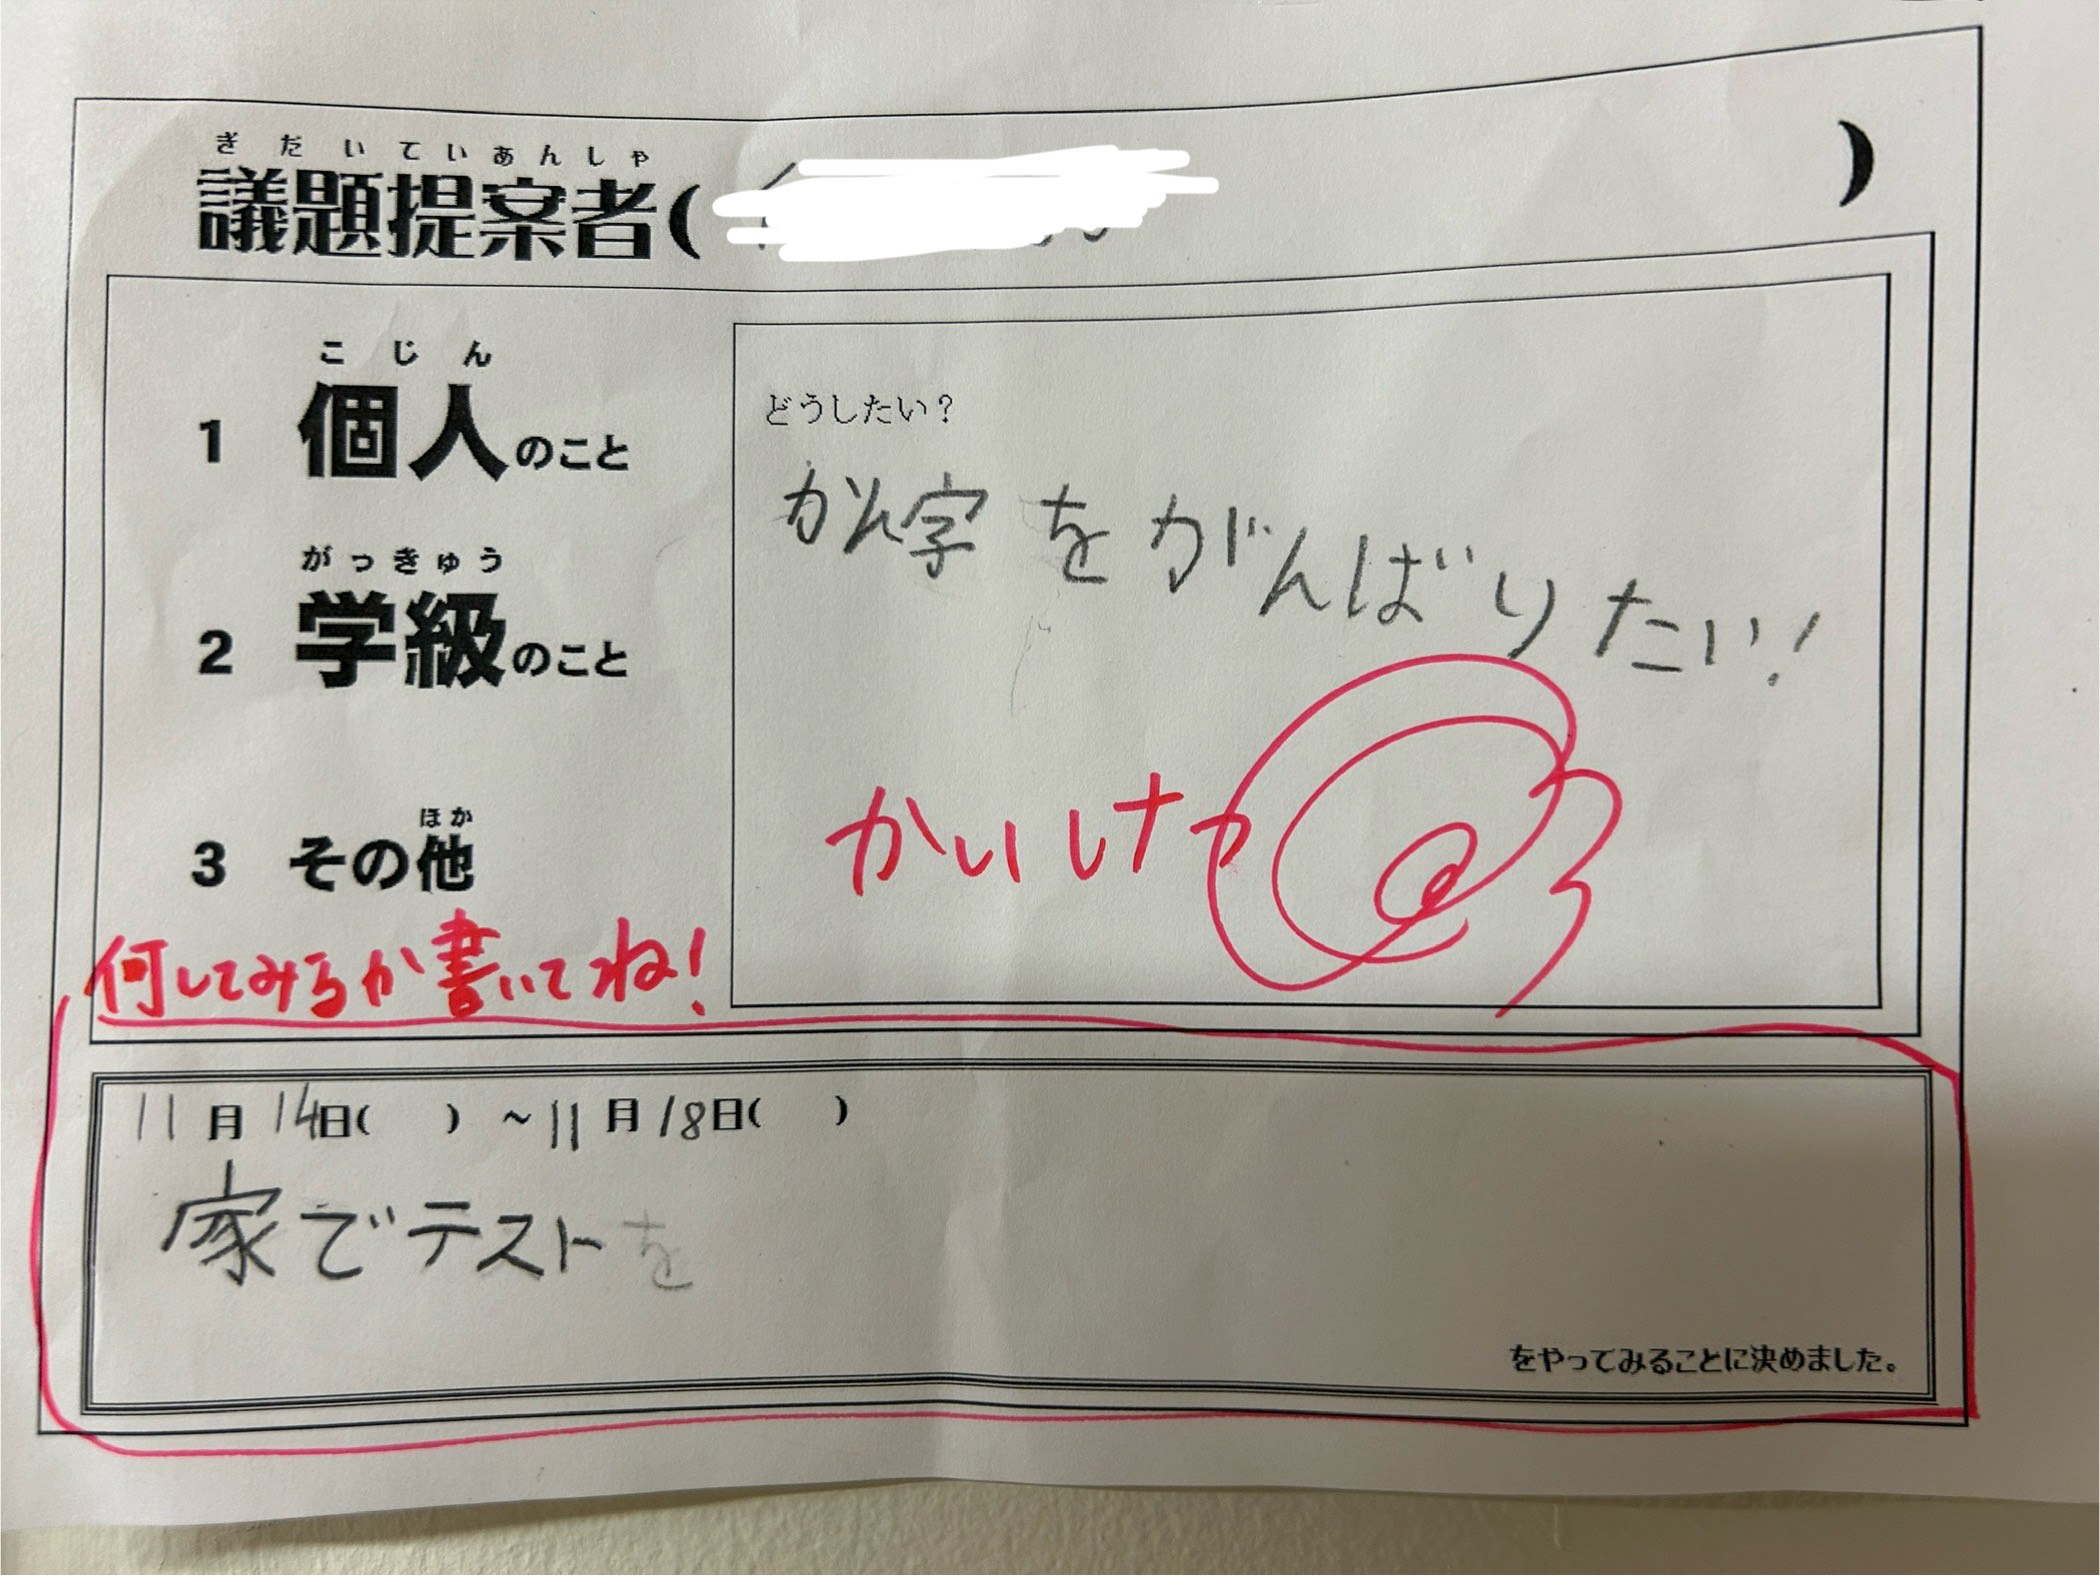 ぎだいていあんしゃ
議題提案者(                    )
こじん
1 個人のこと
がっきゅう
2 学級のこと
ほか
3 その他
どうしたい？
かん字をがんばりたい！
かいけつ
何してみるか書いてね！
11月14日(  ) ～11月18日(  )
家でテストを
をやってみることに決めました。